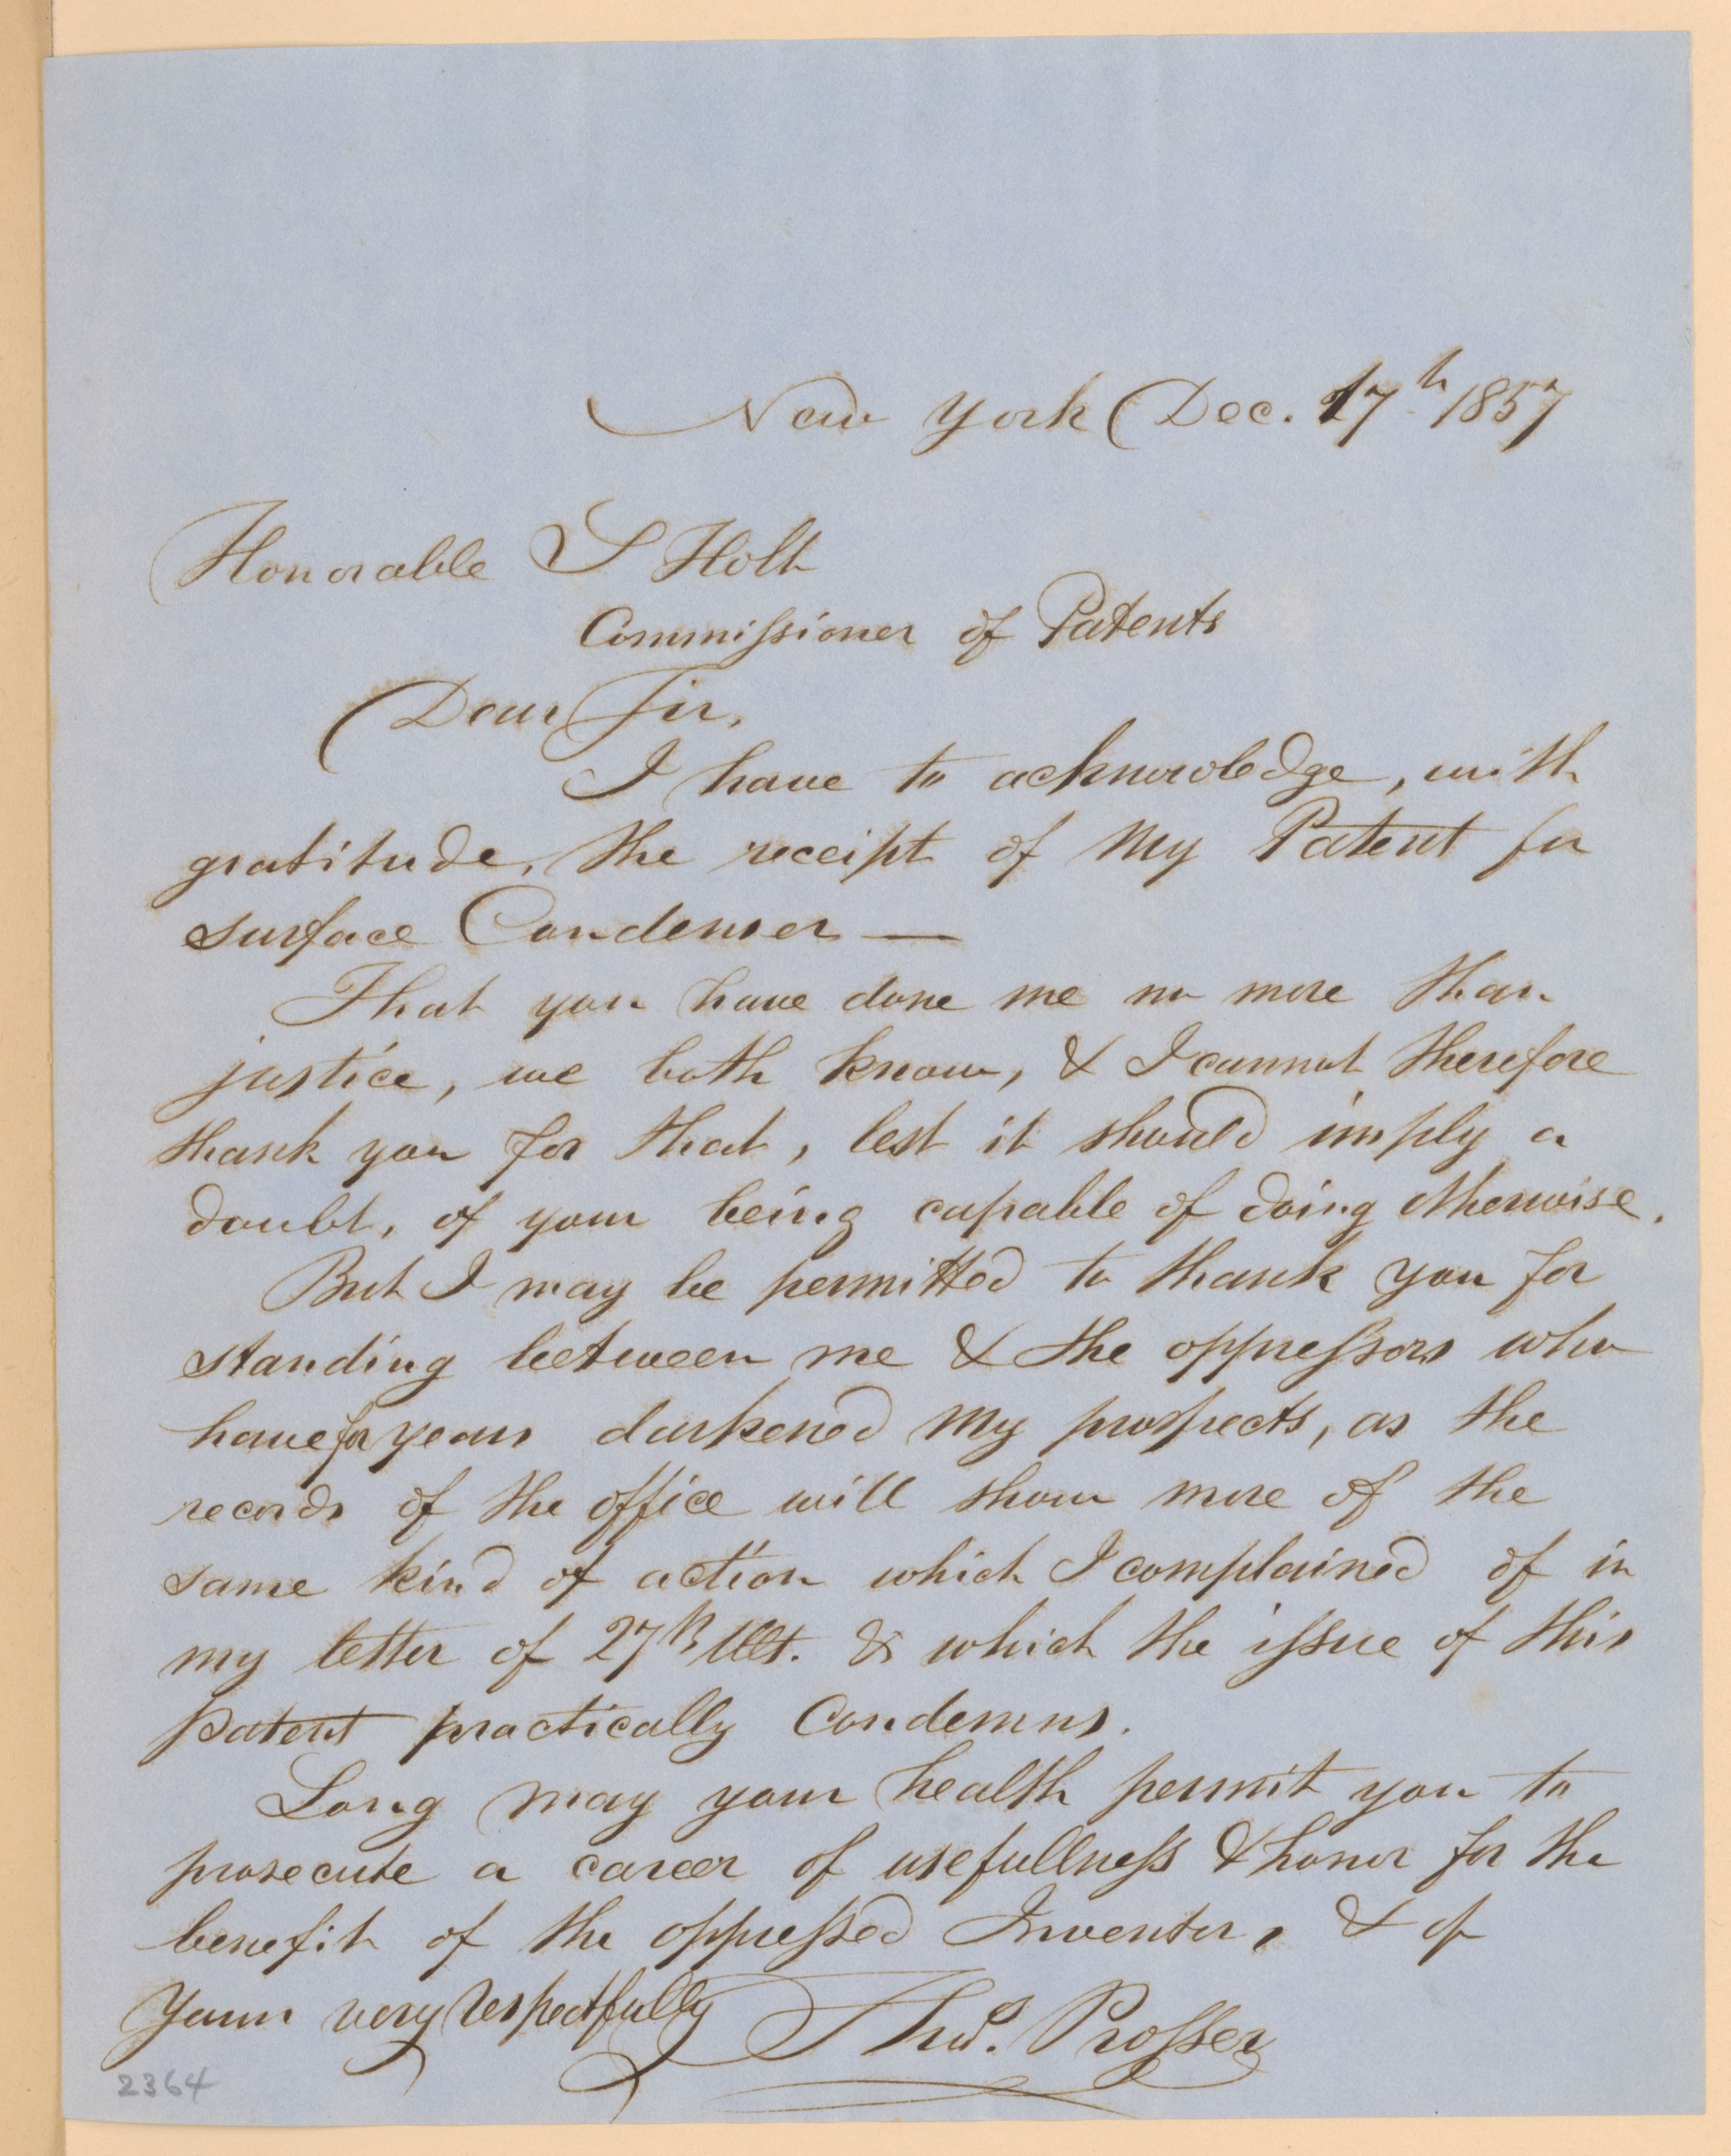 New York Dec. 17th 1857
Honorable J Holt
Commissioner of Patents
Dear Sir,
I have to acknowledge, with
gratitude, the receipt of my Patent for
surface Condenser —
That you have done me no more than
justice, we both know, & I cannot therefore
thank you for that, lest it should imply a
doubt, of your being capable of doing otherwise.
But I may be permitted to thank you for
standing between me & the oppressors who
have for years darkened my prospects, as the
records of the office will show more of the
same kind of action which I complained of in
my letter of 27th Ult. & which the issue of this
patent practically Condemns.
Long may your health permit you to
prosecute a career of usefullness & honor for the
benefit of the oppressed Inventor, & of
Yours very respectfully Thos. Prosser
2364